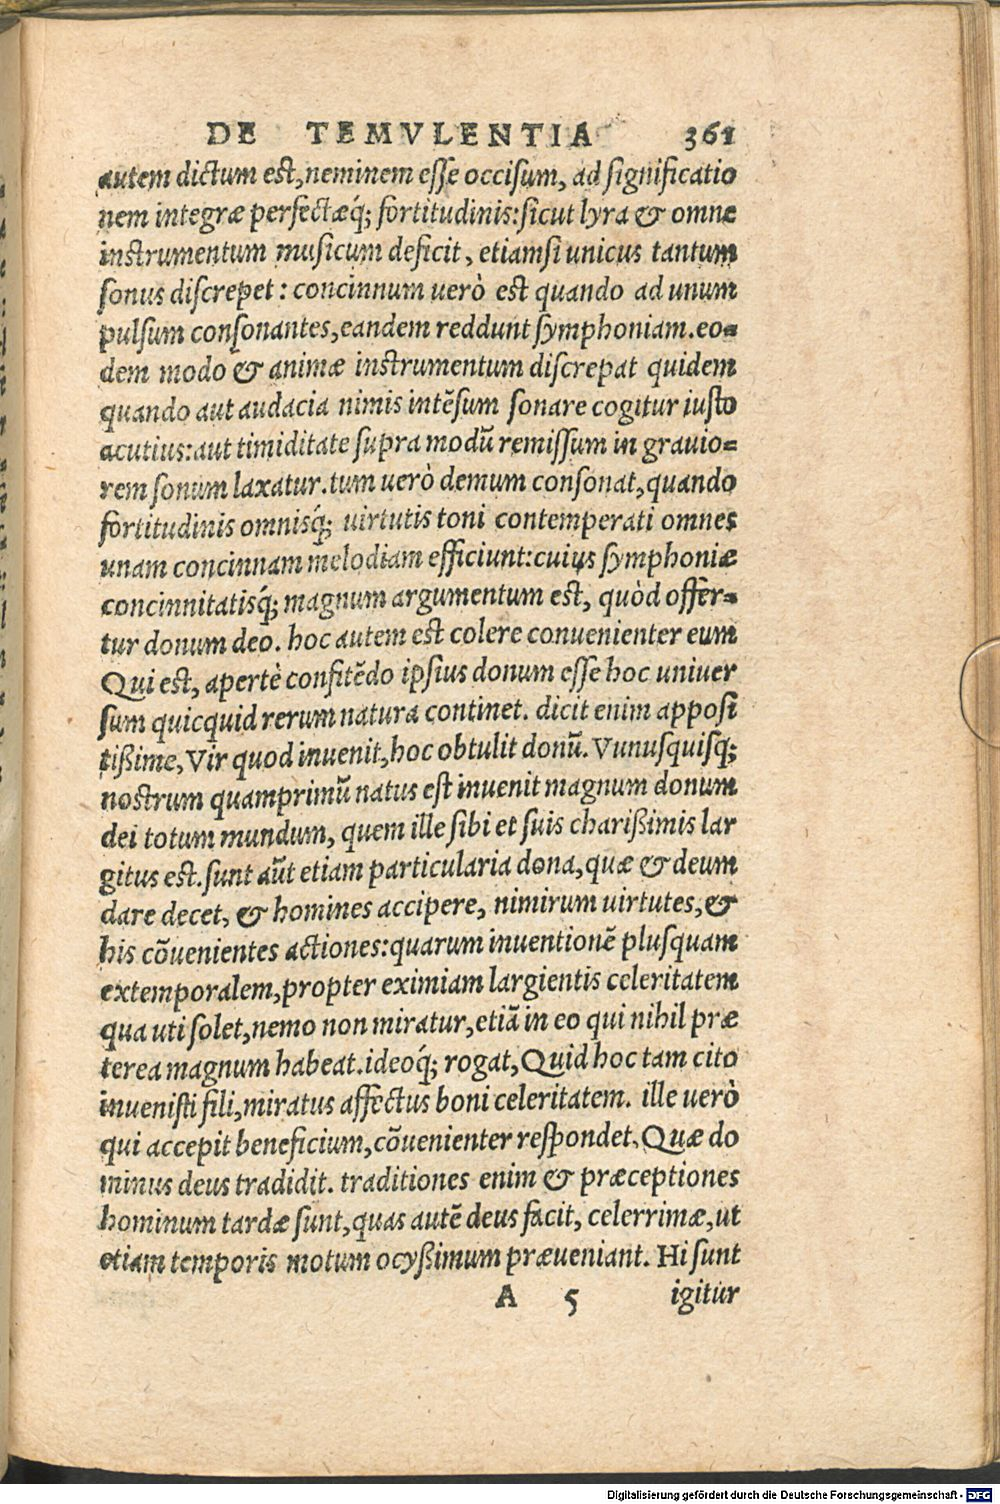 DE TEMVLENTIA 361
autem dictum est, neminem esse occisum, ad significatio
nem integræ perfectæq́; fortitudinis: sicut lyra & omne
instrumentum musicum deficit, etiamsi unicus tantum
sonus discrepet: concinnum uerò est quando ad unum
pulsum consonantes, eandem reddunt symphoniam. eo=
dem modo & animæ instrumentum discrepat quidem
quando aut audacia nimis intẽsum sonare cogitur iusto
acutius: aut timiditate supra modũ remissum in grauio=
rem sonum laxatur. tum uerò demum consonat, quando
fortitudinis omnisq́; uirtutis toni contemperati omnes
unam concinnam melodiam efficiunt: cuius symphoniæ
concinnitatisq́; magnum argumentum est, quòd offer=
tur donum deo. hoc autem est colere conuenienter eum
Qui est, apertè confitẽdo ipsius donum esse hoc uniuer
sum quicquid rerum natura continet. dicit enim apposi
tißime, Vir quod inuenit, hoc obtulit donũ. Vunusquisq;
nostrum quamprimũ natus est inuenit magnum donum
dei totum mundum, quem ille sibi et suis charißimis lar
gitus est. sunt aũt etiam particularia dona, quæ & deum
dare decet, & homines accipere, nimirum uirtutes, &
his cõuenientes actiones: quarum inuentionẽ plusquam
extemporalem, propter eximiam largientis celeritatem
qua uti solet, nemo non miratur, etiã in eo qui nihil præ
terea magnum habeat. ideoq́; rogat, Quid hoc tam cito
inuenisti fili, miratus affectus boni celeritatem. ille uerò
qui accepit beneficium, cõuenienter respondet, Quæ do
minus deus tradidit. traditiones enim & præceptiones
hominum tardæ sunt, quas autẽ deus facit, celerrimæ, ut
etiam temporis motum ocyßimum præueniant. Hi sunt
A 5 igitur
Digitalisierung gefördert durch die Deutsche Forschungsgemeinschaft - DFG